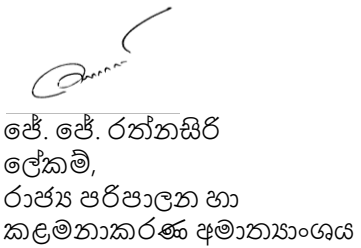 ජේ. ජේ. රත්නසිරි
ලේකම්,
රාජ්‍ය පරිපාලන හා
කළමනාකරණ අමාත්‍යාංශය